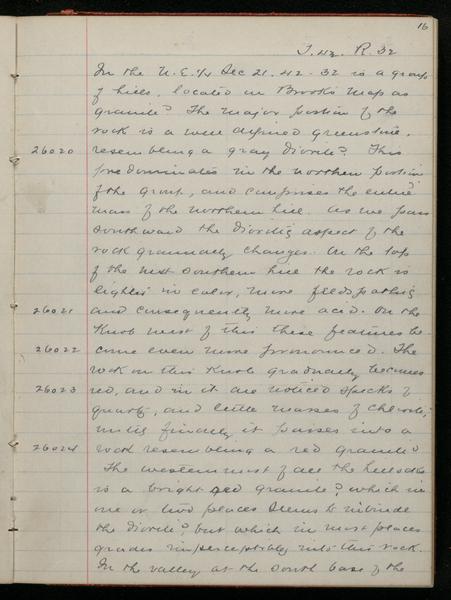 16
T. 42. R. 32
In the N.E.1/4 Sec 21. 42-32 is a group
of hills, located on Brooks map as
granite? The major portion of the
rock is a well defined greenstone,
26020 resembling a gray diorite? This
predominates in the northern portion
of the group, and comprises the entire
mass of the northern hill. As we pass
southward the dioritic aspect of the
rock gradually changes. On the top
of the next southern hill the rock is
lighter in color, more feldspathic
26021 and consequently more acid. On the
Knob west of this these features be-
26022 come even more pronounced. The
rock on this Knob gradually becomes
26023 red, and in it are noticed specks of
quartz, and little masses of chlorite,
until finally it passes into a
26024 rock resembling a red granite?
The westernmost of all the hills
is a bright red granite?, which in
one or two places seems to intrude
the diorite?, but which in most places
grades imperceptibly into this rock.
In the valley at the south base of the